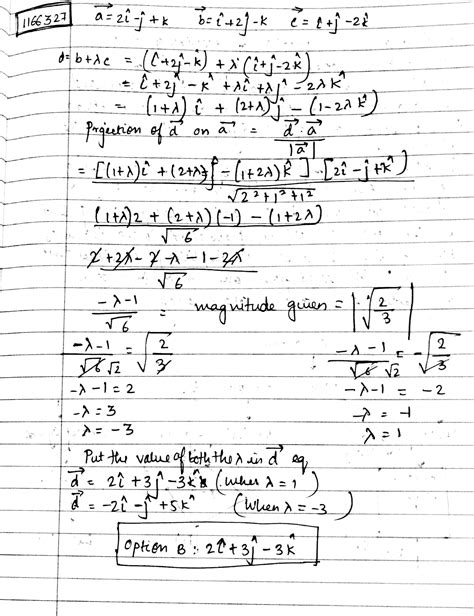 1166327 a⃗ = 2î - ĵ + k b⃗ = î + 2ĵ - k c⃗ = î + ĵ - 2k̂
d = b + λc = (î + 2ĵ - k̂) + λ(î + ĵ - 2k̂)
= î + 2ĵ - k̂ + λî + λĵ - 2λk̂
= (1+λ)î + (2+λ)ĵ - (1-2λk̂)
Projection of d⃗ on a⃗ = d⃗ · a⃗ / |a⃗|
= [(1+λ)î + (2+λ)ĵ - (1+2λ)k̂] · [2î - ĵ + k̂] / √(2²+1²+1²)
(1+λ)2 + (2+λ)(-1) - (1+2λ) / √6
2 + 2λ - 2 - λ - 1 - 2λ / √6
-λ-1 / √6 = magnitude given = |√(2/3)|
-λ-1 / √6 √2 = √(2/3) -λ-1 / √6 √2 = -√(2/3)
-λ-1 = 2 -λ-1 = -2
-λ = 3 -λ = -1
λ = -3 λ = 1
Put the value of both the λ in d⃗ eq
d⃗ = 2î + 3ĵ - 3k̂ (when λ = 1)
d⃗ = -2î - ĵ + 5k̂ (When λ = -3)
Option B : 2î + 3ĵ - 3k̂